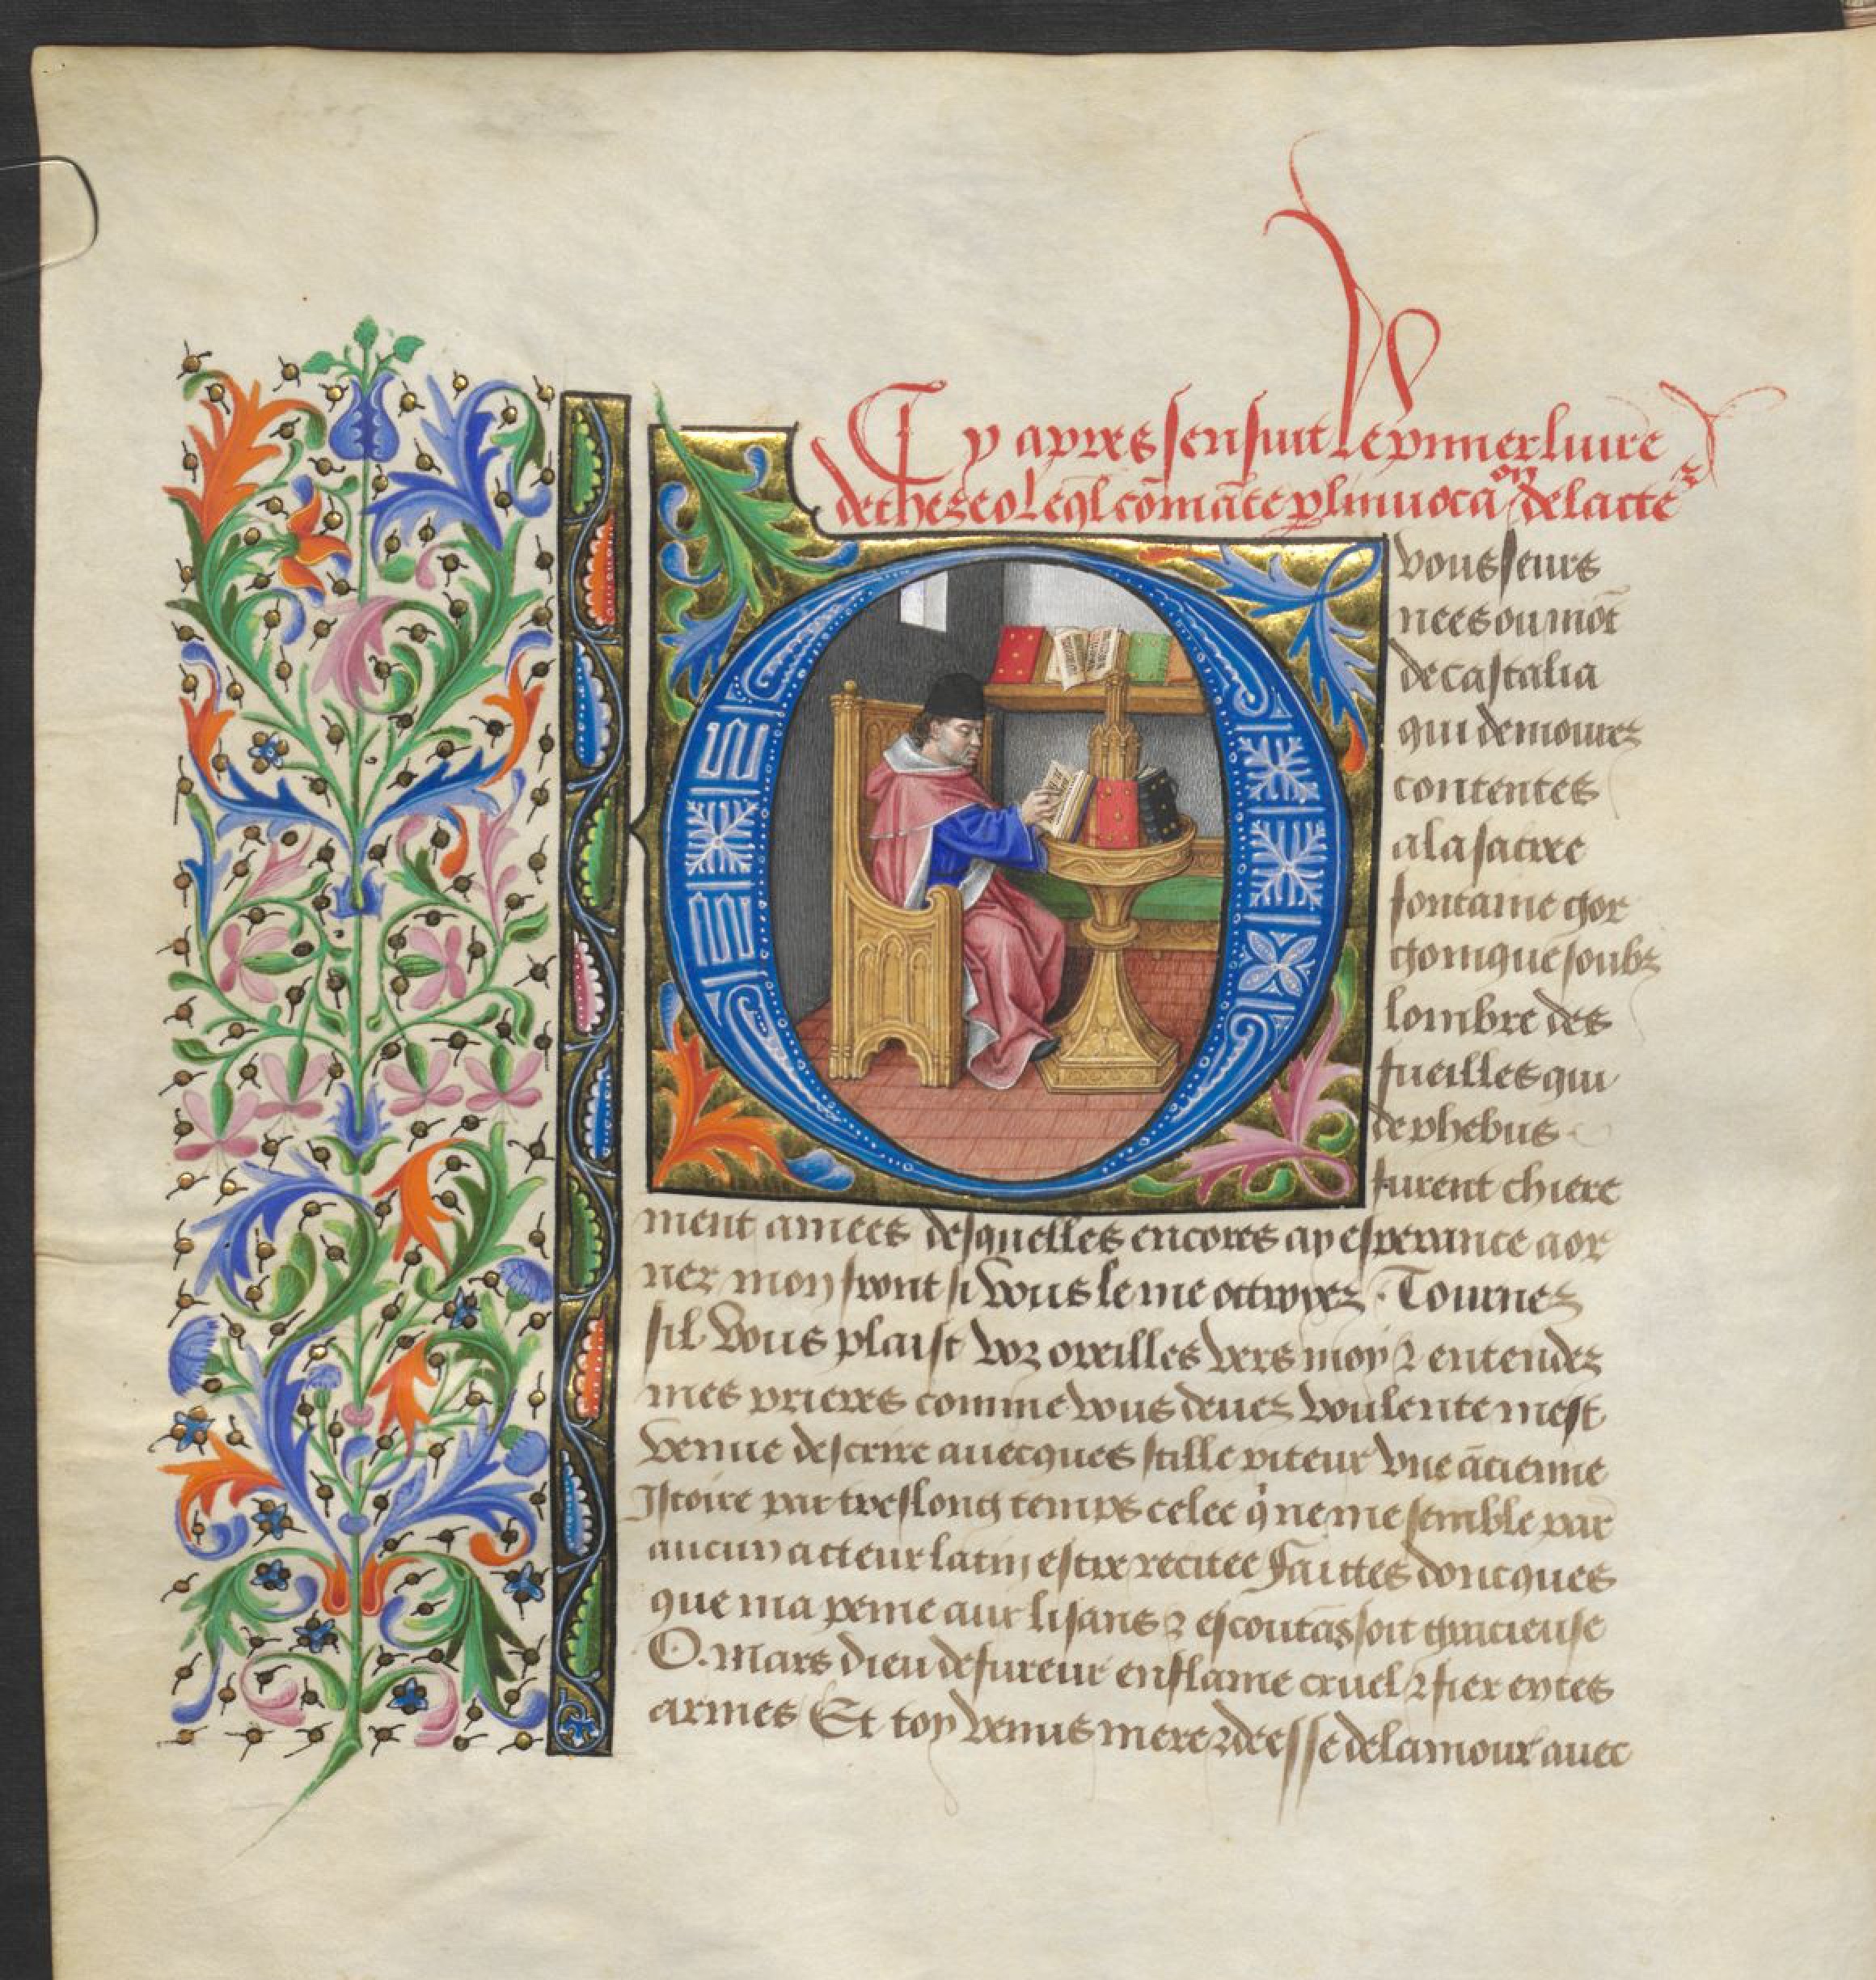 Cy apres sensuit le primier liure
de thezeo Leql cōmāce p linuocaōn de lacteᷣ
O
vous seurs
nees ou mōt
de castalia
qui demoures
contentes
a la sacree
fontaine gor
gonique soubz
lombre des
fueilles qui
de phebus
furent chiere
ment amees desquelles encores ay esperance aor
ner mon front si vous le me ottroyez. Tournez
sil vous plaist voz oreilles vers moy ⁊ entendez
mes prieres comme vous deuez voulente mest
venue descrire auecques stille piteux vne āciemne
Istoire par treslong temps celee q̇ ne me semble par
aucun acteur latin estre recitee Faittes doncques
que ma peine aux lisans ⁊ escoutās soit gracieuse
O. Mars dieu de fureur enflame cruel ⁊ fier en tes
armes Et toy venus mere ⁊ deesse de lamour auec